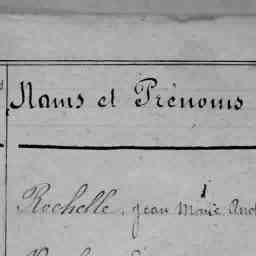 Noms et Prénoms
Rochelle, Jean Marie